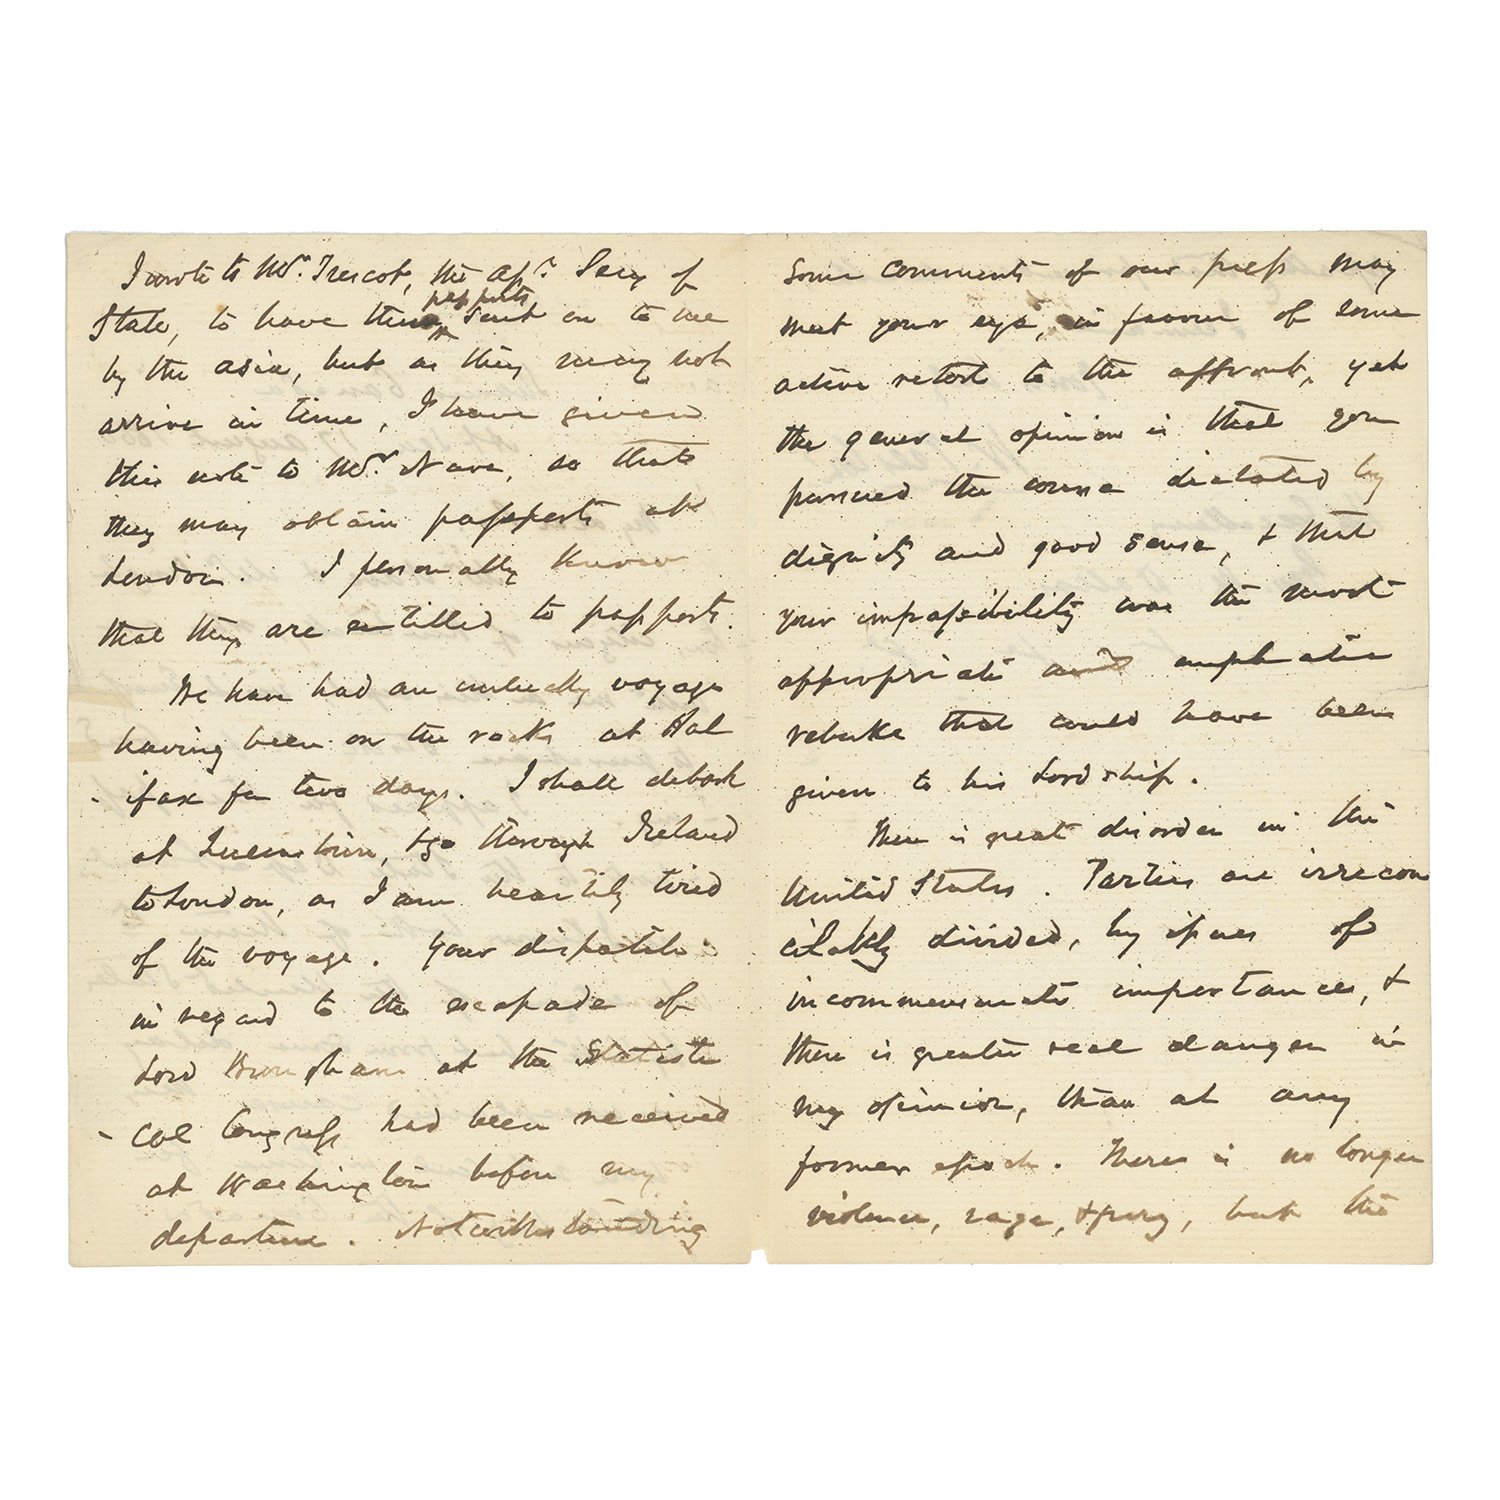 I wrote to Mr. Trescot, the Asst. Secy of
passports
State, to have them sent on to me
by the Asia, but as they may not
arrive in time, I have given
this note to Mr. Nave, so that
they may obtain passports at
London. I personally know
that they are entitled to passports.
We have had an unlucky voyage
having been on the rocks at Hal
- ifax for two days. I shall debark
at Queenstown, & go through Ireland
to London, as I am heartily tired
of the voyage. Your dispatch
in regard to the escapade of
Lord Brougham at the Statisti
- cal Congress had been received
at Washington before my
departure. Notwithstanding
some comments of our press may
meet your eye, in favour of some
active retort to the affront, yet
the general opinion is that you
pursued the course dictated by
dignity and good sense, & that
your impassibility was the most
appropriate and emphatic
rebuke that could have been
given to his Lordship.
There is great disorder in the
United States. Parties are irrecon
cilably divided, by issues of
incommensurate importance, &
there is greater real danger in
my opinion, than at any
former epoch. There is no longer
violence, rage, & fury, but the